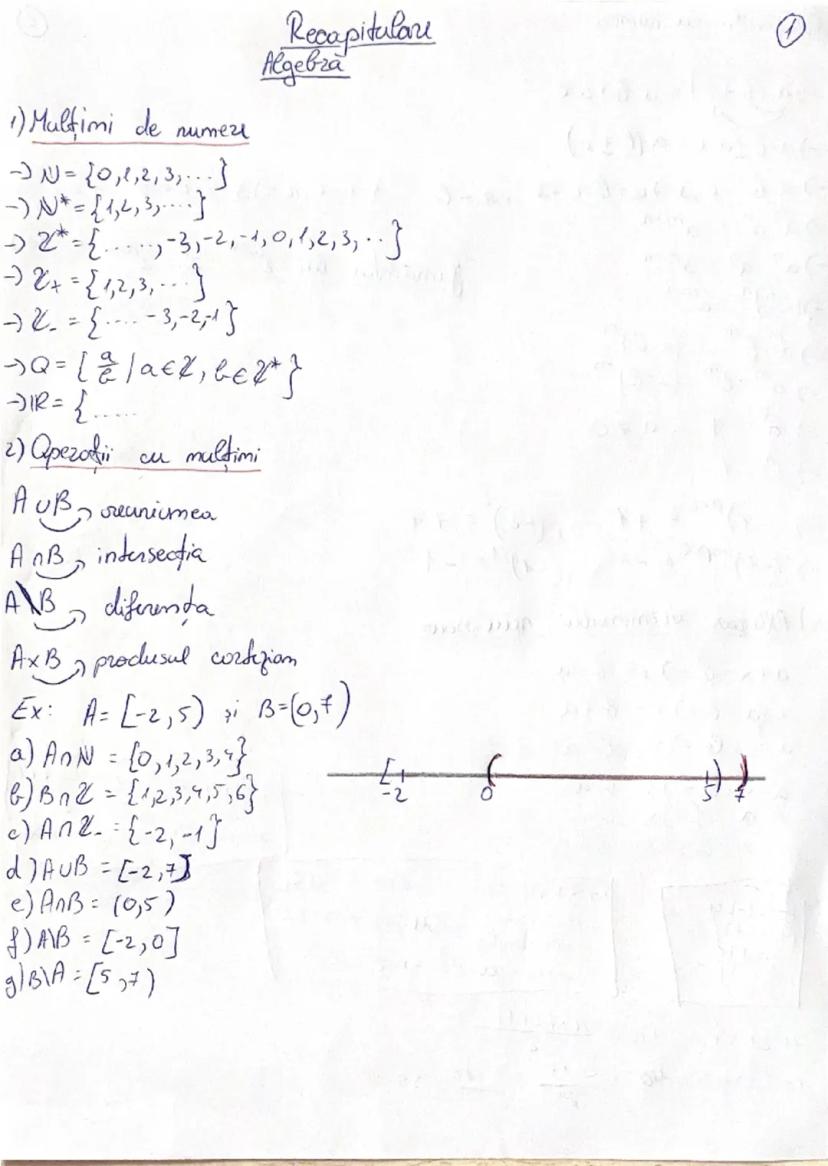 Recapitulare
1
Algebră
1) Mulțimi de numere
-) N = {0,1,2,3,...}
-) N* = {1,2,3,...}
-) Z* = {....., -3,-2,-1,0,1,2,3,..}
-) Z+ = {1,2,3,...}
-) Z- = {.... -3,-2,-1}
-) Q = { a/b | a ∈ Z, b ∈ Z* }
-) IR = { .....
2) Operații cu mulțimi
A ∪ B reuniunea
A ∩ B intersecția
A \ B diferența
A × B produsul cartezian
Ex: A = [-2,5) și B = (0,7)
a) A ∩ N = {0,1,2,3,4}
b) B ∩ Z = {1,2,3,4,5,6}
[ ( ) )
-2 0 5 7
c) A ∩ Z- = {-2,-1}
d) A ∪ B = [-2,7]
e) A ∩ B = (0,5)
f) A\B = [-2,0]
g) B\A = [5,7)